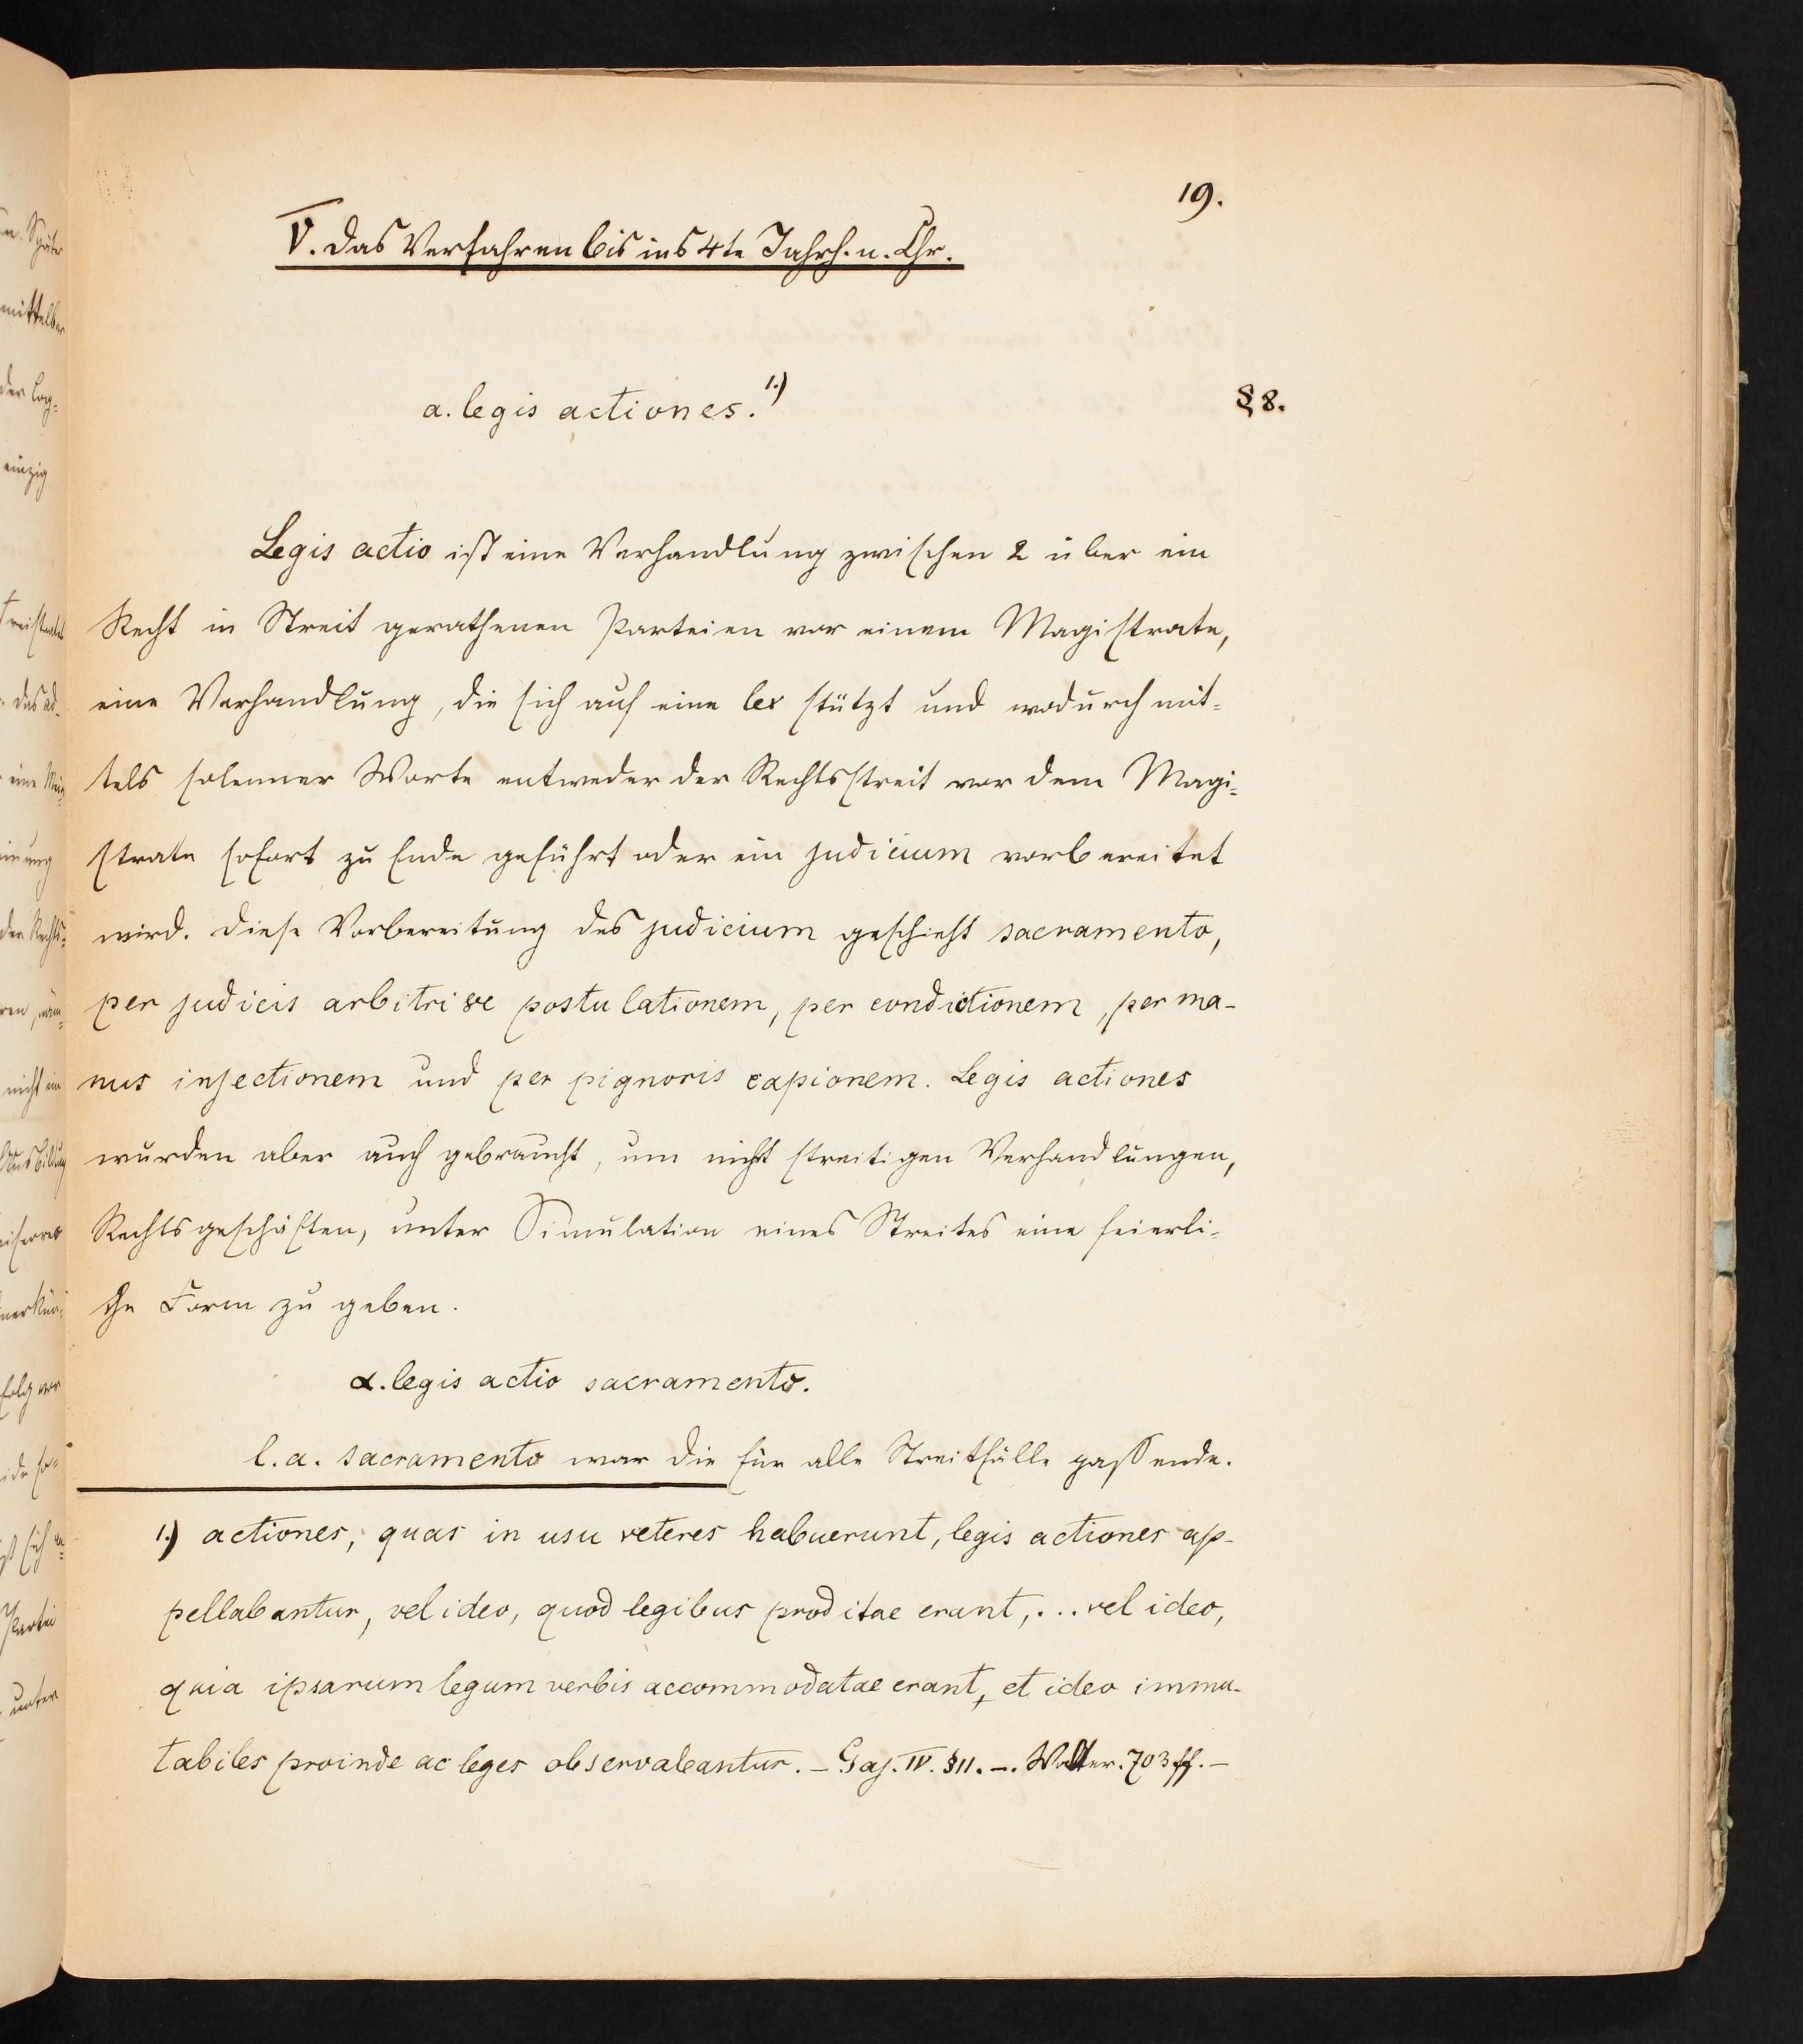 19.
V. Das Verfahren bis ins 4te Jahrh. n. Chr.
a. legis actiones. 1.)
§ 8.
Legis actio ist eine Verhandlung zwischen 2 über ein
Recht in Streit gerathenen Parteien vor einem Magistrate,
eine Verhandlung, die sich auf eine lex stützt und wodurch mit-
tels solenner Worte entweder der Rechtsstreit vor dem Magi-
strate sofort zu Ende geführt oder ein judicium vorbereitet
wird. Diese Vorbereitung des judicium geschieht sacramento,
per judicis arbitrive postulationem, per condictionem, per ma-
nus injectionem und per pignoris capionem. Legis actiones
wurden aber auch gebraucht, um nicht streitigen Verhandlungen,
Rechtsgeschäften, unter Simulation eines Streites eine feierli-
che Form zu geben.
α. legis actio sacramento.
l. a. sacramento war die für alle Streitfälle passende.
1.) actiones, quas in usu veteres habuerunt, legis actiones ap-
pellabantur, vel ideo, quod legibus proditae erant, ... vel ideo,
quia ipsarum legum verbis accommodatae erant, et ideo immu-
tabiles proinde ac leges observabantur. – Gaj. IV. § 11. –. Walter. 703 ff. –
n. Später
mittelbar
einzig
nicht ein
Partei
unter